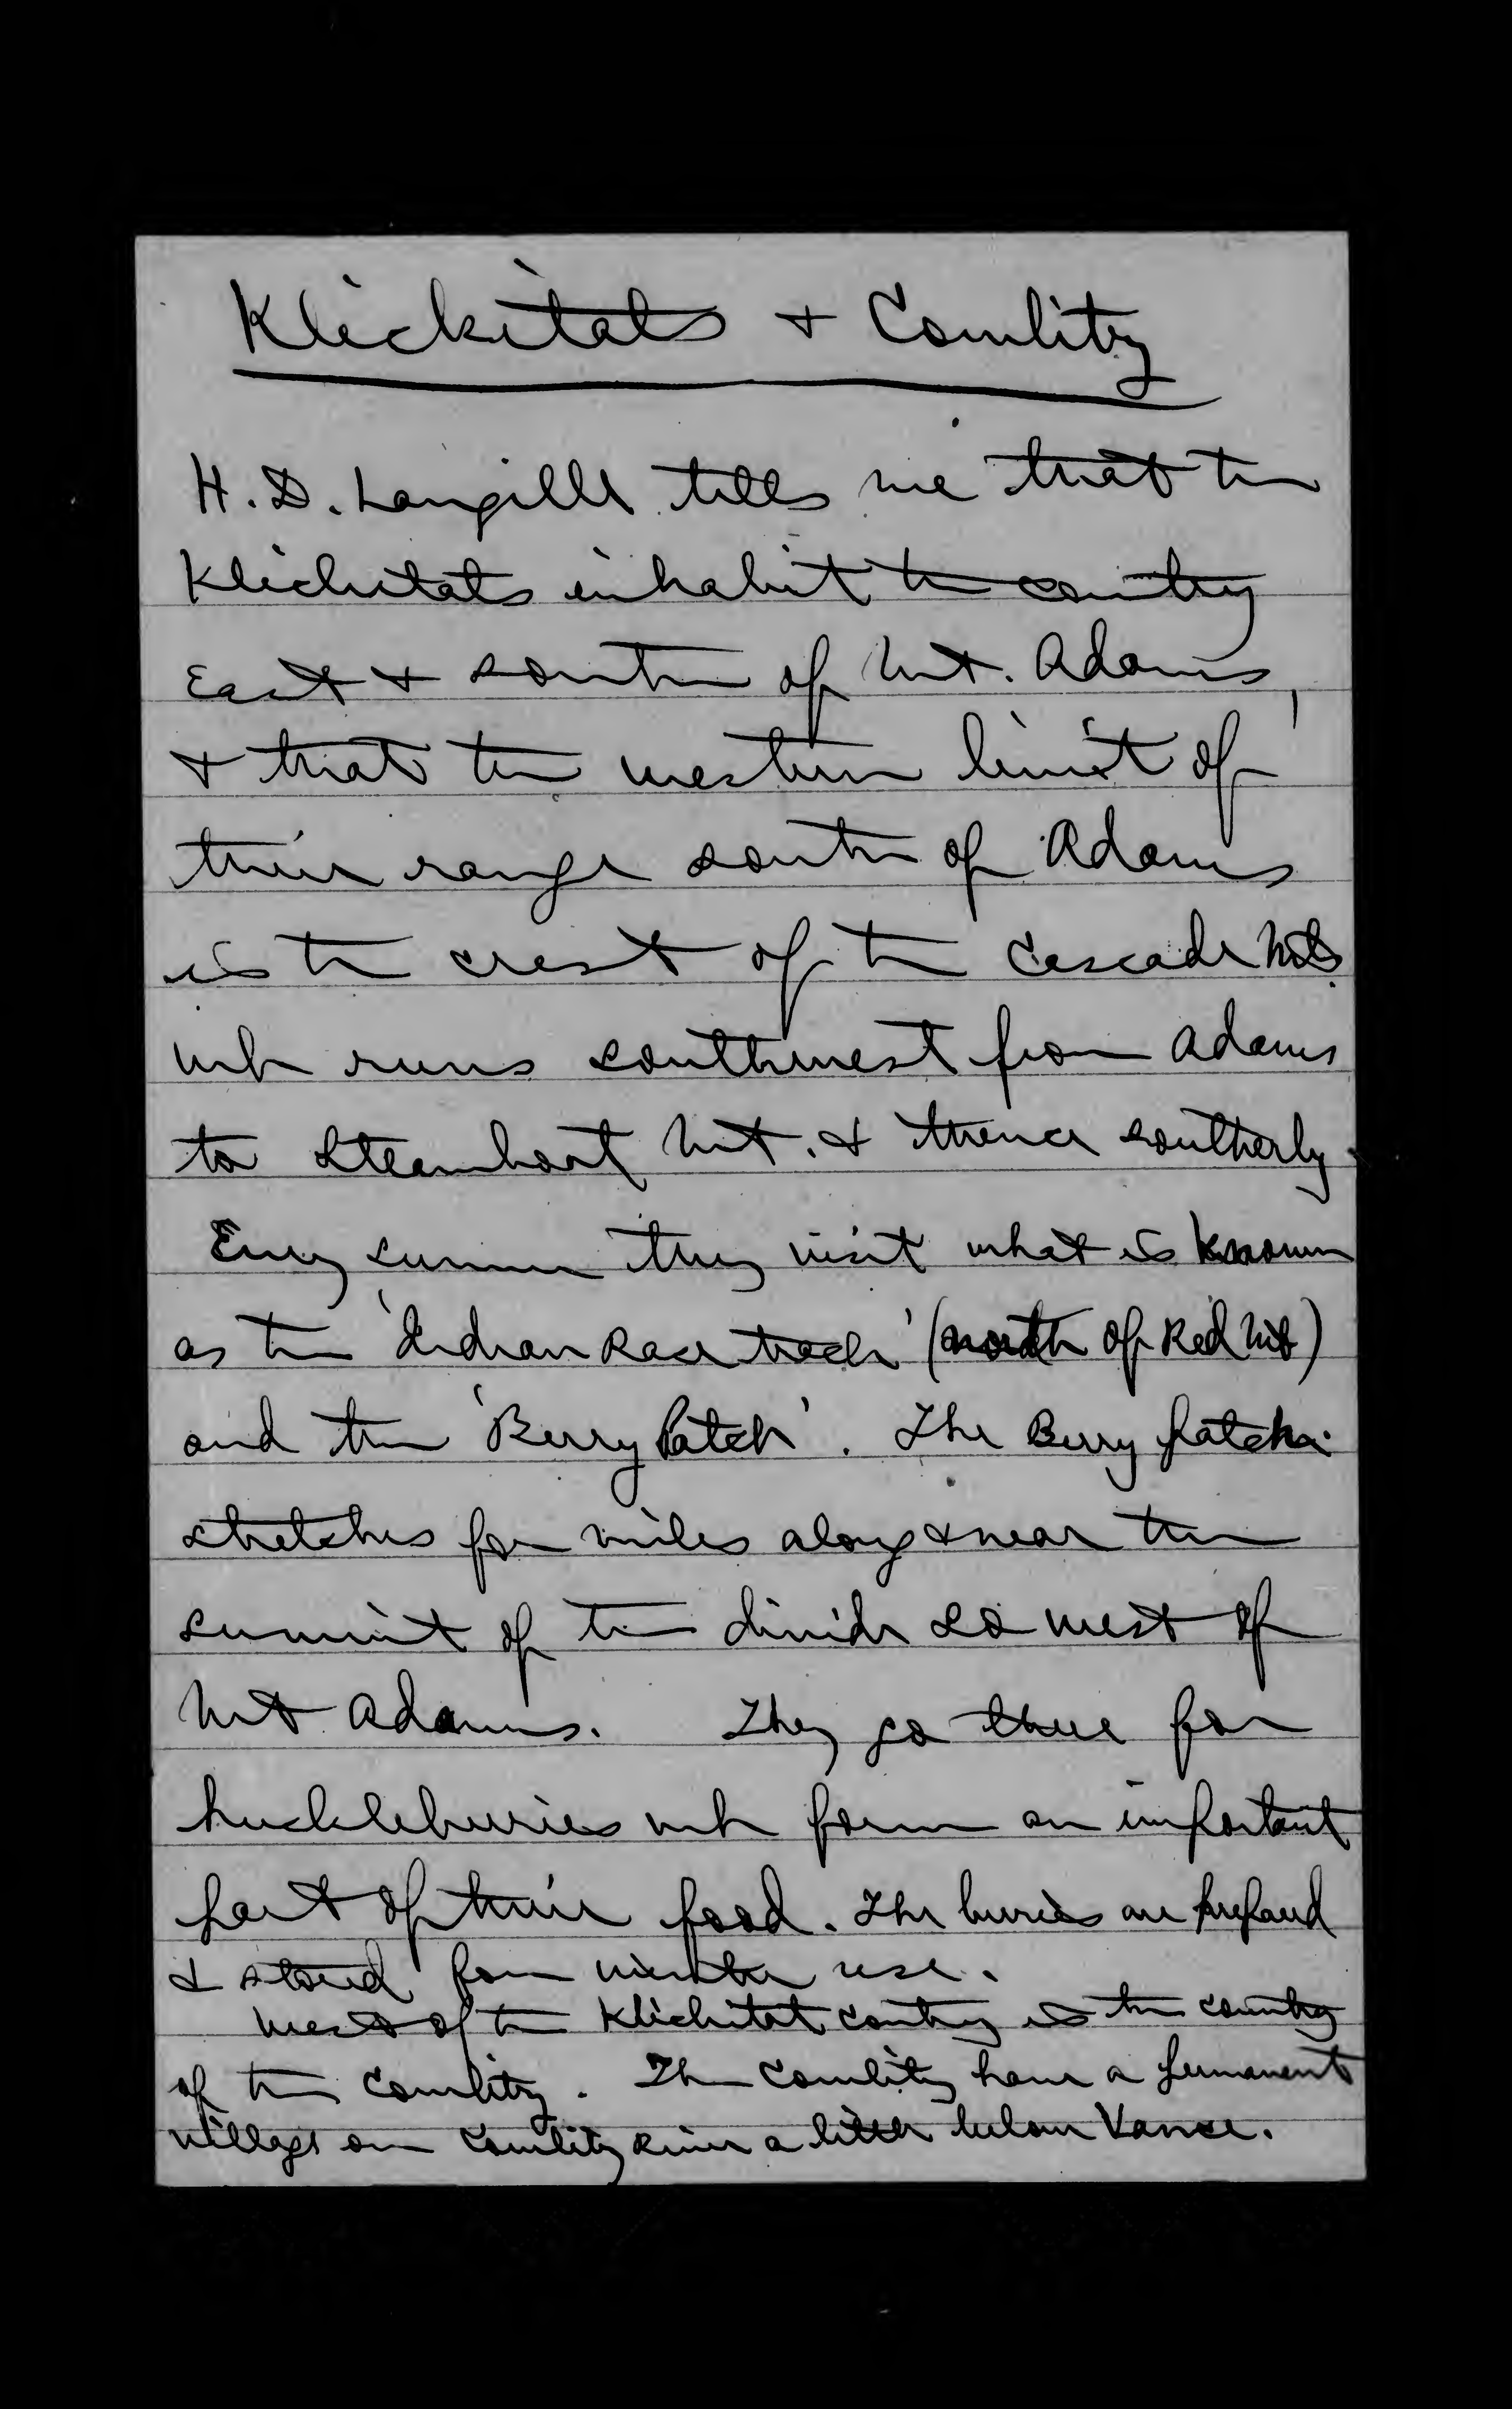 Klickitats + Cowlitz
H. D. Langille tells me that the
Klickitats inhabit the country
East + south of Mt. Adams,
+ that the western limit of
their range south of Adams
is the crest of the Cascade Mts.
wh runs southwest from Adams
to Steamboat Mt. & thence southerly.
Every summer they visit what is known
as the 'Indian Race track' (north of Red Mt)
and the 'Berry Patch'. The Berry patch
stretches for miles along & near the
summit of the divide so west of
Mt Adams. They go there for
huckleberries wh form an important
part of their food. The berries are prepared
& stored for winter use.
West of the Klickitat country is the country
of the Cowlitz. The Cowlitz have a permanent
village on Cowlitz River a little below Vance.